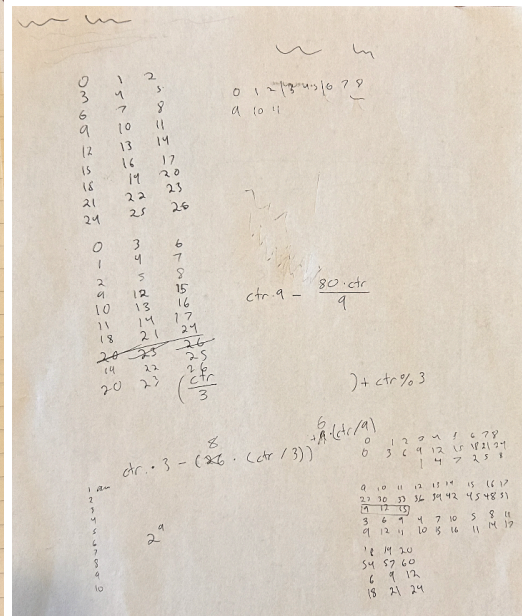 0 1 2
3 4 5
6 7 8
9 10 11
12 13 14
15 16 17
18 19 20
21 22 23
24 25 26
0 1 2 | 3 4 5 | 6 7 8
9 10 11
0 3 6
1 4 7
2 5 8
9 12 15
10 13 16
11 14 17
18 21 24
20 23 26
19 22 25
20 23 26
ctr.9 - 80.ctr / 9
(ctr / 3
) + ctr % 3
ctr . 3 - ( 8 . (ctr / 3))
6 . (ctr / 9)
1
2
3
4
5
6
7
8
9
10
2^9
0 1 2 3 4 5 6 7 8
0 3 6 9 12 15 18 21 24
1 4 7 2 5 8
9 10 11 12 13 14 15 16 17
27 30 33 36 39 42 45 48 51
9 12 15
3 6 9 4 7 10 5 8 11
9 12 11 10 13 16 11 14 17
18 19 20
54 57 60
6 9 12
18 21 24